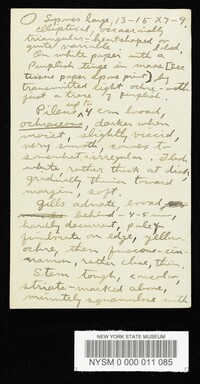 O Spores large, 13-15 X 7-9,
elliptical, occasionally
triangular-heartshaped or
quite variable.
On white paper with a
Purplish tinge in mass (see
tissue paper spore print) by
transmitted light ochre - with
just a trace of purplish.
Pileus up to 4 cm broad,
ochraceous, darker when
moist, slightly viscid,
very smooth, convex to
somewhat irregular. Flesh
white rather thick at disk,
gradually thinner toward
margin, soft.
Gills adnate, broad
behind - 4-5 mm,
hardly decurrent, pale &
fimbriate on edge, yellow-
ochre, then fuscous-cin-
namon, rather close, thin.
Stem tough, concolor,
striate-marked above,
minutely squamulose with
NEW YORK STATE MUSEUM
NYSM 0 000 011 085